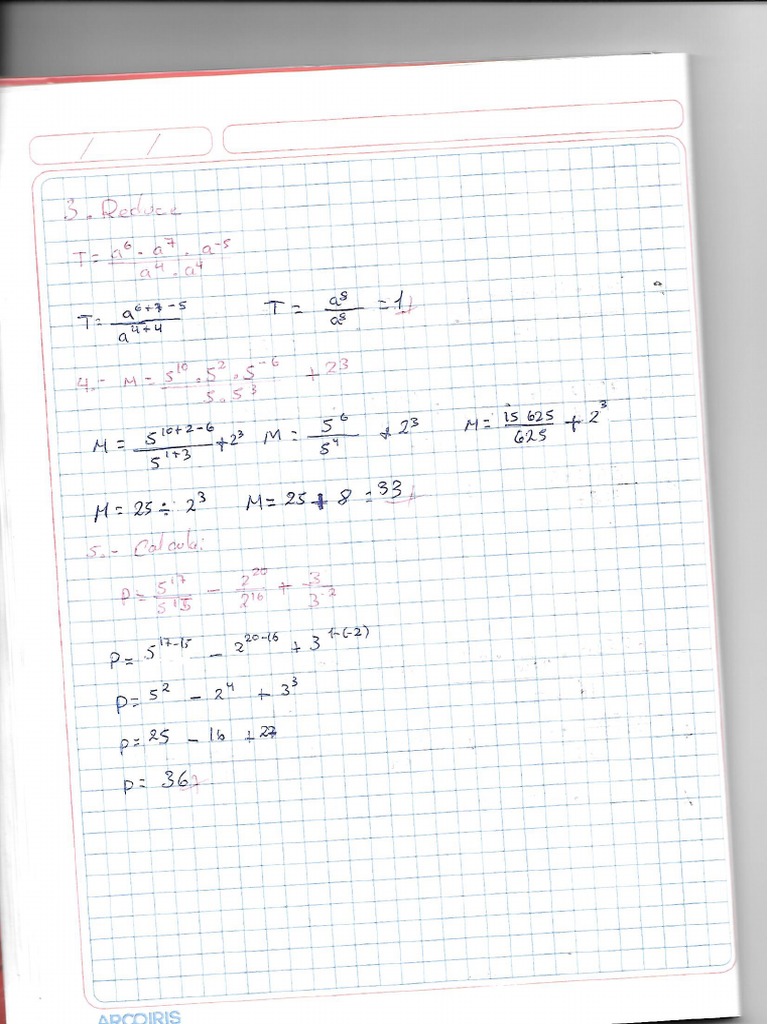 3. Reduce
T = a⁶ · a⁷ · a⁻⁵ / a⁴ · a⁴
T = a⁶⁺⁷⁻⁵ / a⁴⁺⁴ T = a⁸ / a⁸ = 1
4.- M = 5¹⁰ · 5² · 5⁻⁶ / 5 · 5³ + 2³
M = 5¹⁰⁺²⁻⁶ / 5¹⁺³ + 2³ M = 5⁶ / 5⁴ + 2³ M = 15 625 / 625 + 2³
M = 25 ÷ 2³ M = 25 + 8 = 33
5.- Calcula:
P = 5¹⁷ / 5¹⁵ - 2²⁰ / 2¹⁶ + 3 / 3⁻²
P = 5¹⁷⁻¹⁵ - 2²⁰⁻¹⁶ + 3¹⁻⁽⁻²⁾
P = 5² - 2⁴ + 3³
P = 25 - 16 + 27
P = 36
ARCOIRIS